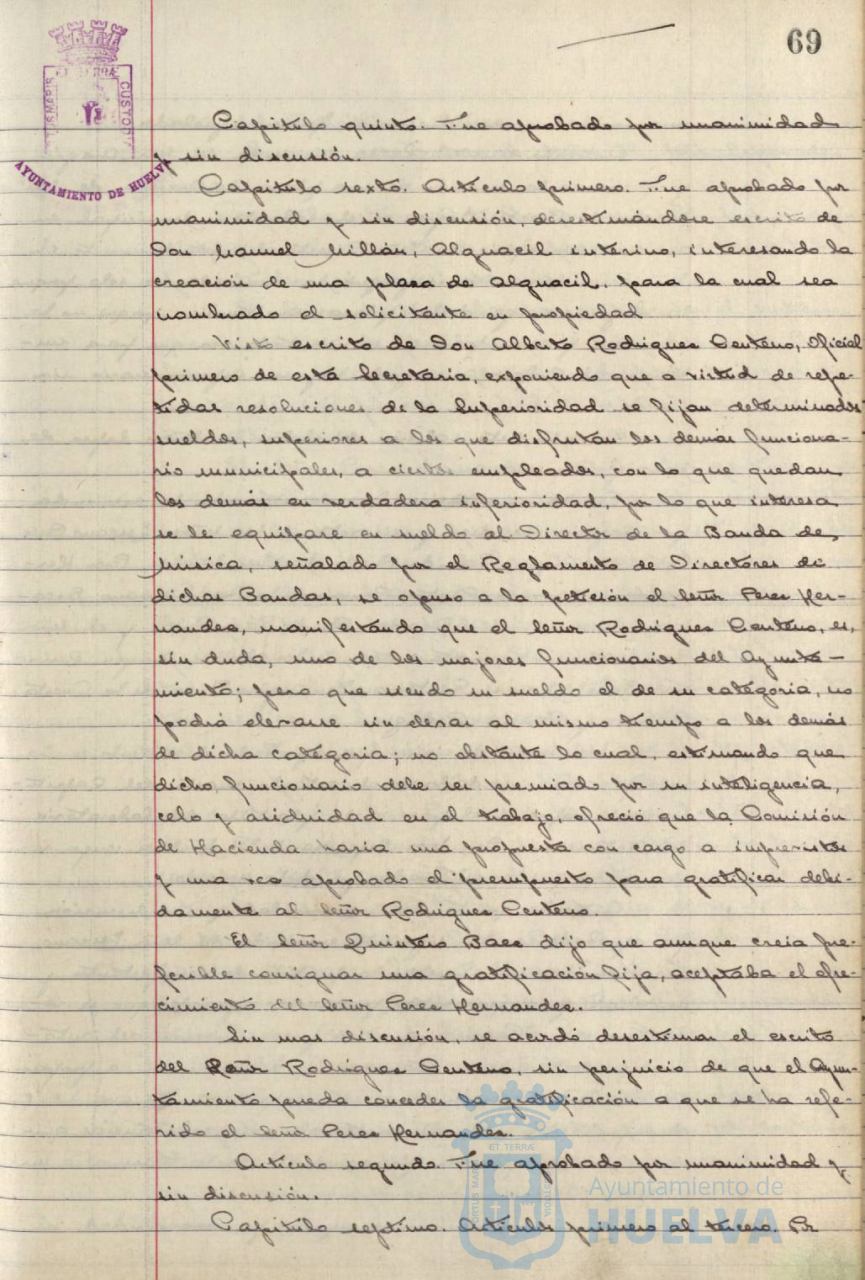 69
PORTUS MARIS ET TERRÆ CUSTODIA
AYUNTAMIENTO DE HUELVA
Capitulo quinto. Fue aprobado por unanimidad
y sin discusión.
Capitulo sexto. Articulo primero. Fue aprobado por
unanimidad y sin discusión, desestimándose escrito de
Don Manuel Millán, Alguacil interino, interesando la
creación de una plaza de Alguacil, para la cual sea
nombrado el solicitante en propiedad
Visto escrito de Don Alberto Rodriguez Centeno, Oficial
primero de esta Secretaria, exponiendo que a virtud de repe-
tidas resoluciones de la Superioridad se fijan determinados
sueldos, superiores a los que disfrutan los demás funciona-
rio municipales, a ciertos empleados, con lo que quedan
los demás en verdadera inferioridad, por lo que interesa
se le equipare en sueldo al Director de la Banda de
Música, señalado por el Reglamento de Directores de
dichas Bandas, se opuso a la petición el señor Perez Her-
nandez, manifestando que el señor Rodriguez Centeno, es,
sin duda, uno de los mejores funcionarios del Ayunta-
miento; pero que siendo su sueldo el de su categoria, no
podrá elevarse sin elevar al mismo tiempo a los demás
de dicha categoria; no obstante lo cual, estimando que
dicho funcionario debe ser premiado por su inteligencia,
celo y asiduidad en el trabajo, ofreció que la Comisión
de Hacienda haria una propuesta con cargo a imprevistos
y una vez aprobado el presupuesto para gratificar debi-
damente al señor Rodriguez Centeno.
El señor Quintero Baez dijo que aunque creia pre-
ferible consignar una gratificación fija, aceptaba el ofre-
cimiento del señor Perez Hernandez.
Sin mas discusión, se acordó desestimar el escrito
del señor Rodriguez Centeno, sin perjuicio de que el Ayun-
tamiento pueda conceder la gratificación a que se ha refe-
rido el señor Perez Hernandez.
Articulo segundo. Fue aprobado por unanimidad y
sin discusión.
Capitulo septimo. Articulos primero al tercero. Por
Ayuntamiento de
HUELVA